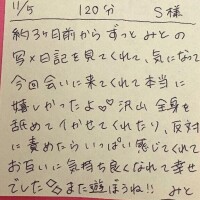 11/5 120分 S様
約3ヶ月前からずっとみとの
写メ日記を見てくれて、気になって
今回会いに来てくれて本当に
嬉しかったよ♡♡沢山全身を
舐めてイかせてくれたり、反対
に責めたらいっぱい感じてくれて
お互いに気持ち良くなれて幸せ
でした また遊ぼうね!! みと